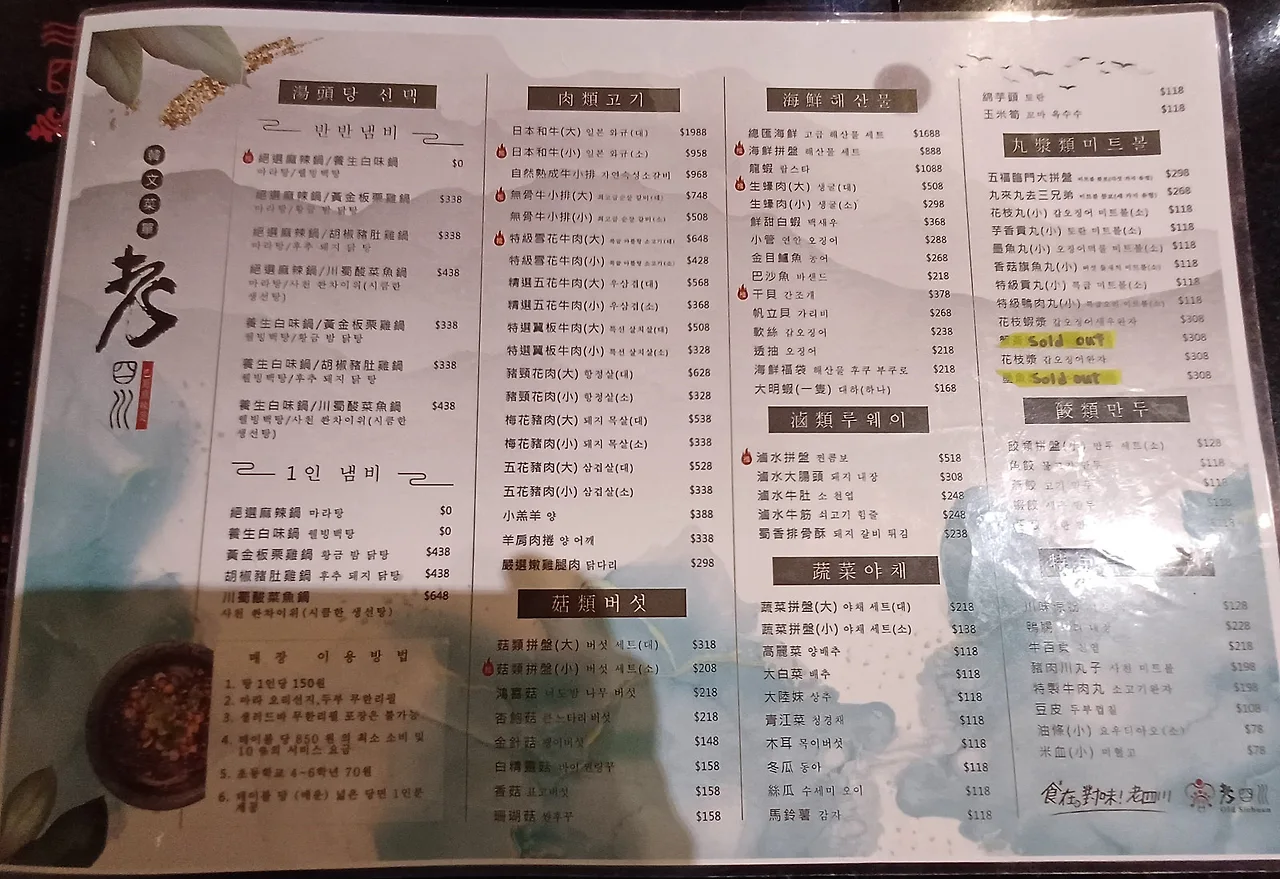 韓文菜單
老四川
湯頭탕 선택
반반냄비
絕選麻辣鍋/養生白味鍋 $0
마라탕/웰빙백탕
絕選麻辣鍋/黃金板栗雞鍋 $338
마라탕/황금 밤 닭탕
絕選麻辣鍋/胡椒豬肚雞鍋 $338
마라탕/후추 돼지 닭 탕
絕選麻辣鍋/川蜀酸菜魚鍋 $438
마라탕/사천 쏸차이위(시큼한
생선탕)
養生白味鍋/黃金板栗雞鍋 $338
웰빙백탕/황금 밤 닭탕
養生白味鍋/胡椒豬肚雞鍋 $338
웰빙백탕/후추 돼지 닭 탕
養生白味鍋/川蜀酸菜魚鍋 $438
웰빙백탕/사천 쏸차이위(시큼한
생선탕)
1인 냄비
絕選麻辣鍋 마라탕 $0
養生白味鍋 웰빙백탕 $0
黃金板栗雞鍋 황금 밤 닭탕 $438
胡椒豬肚雞鍋 후추 돼지 닭탕 $438
川蜀酸菜魚鍋 $648
사천 쏸차이위(시큼한 생선탕)
매장 이용방법
1. 탕 1인당 150원
2. 마라 오리선지,두부 무한리필
3. 샐러드바 무한리필 포장은 불가능
4. 테이블 당 850 원 의 최소 소비 및
10 %의 서비스 요금
5. 초등학교 4-6학년 70원
6. 테이블 당 (매운) 넓은 당면 1인분
제공
肉類고기
日本和牛(大) 일본 와규(대) $1988
日本和牛(小) 일본 와규(소) $958
自然熟成牛小排 자연숙성소갈비 $968
無骨牛小排(大) $748
無骨牛小排(小) $508
特級雪花牛肉(大) $648
特級雪花牛肉(小) $428
精選五花牛肉(大) 우삼겹(대) $568
精選五花牛肉(小) 우삼겹(소) $368
特選翼板牛肉(大) 특선 살치살(대) $508
特選翼板牛肉(小) 특선 살치살(소) $328
豬頸花肉(大) 항정살(대) $628
豬頸花肉(小) 항정살(소) $328
梅花豬肉(大) 돼지 목살(대) $538
梅花豬肉(小) 돼지 목살(소) $338
五花豬肉(大) 삼겹살(대) $528
五花豬肉(小) 삼겹살(소) $338
小羔羊 양 $388
羊肩肉捲 양 어깨 $338
嚴選嫩雞腿肉 닭다리 $298
菇類버섯
菇類拼盤(大) 버섯 세트(대) $318
菇類拼盤(小) 버섯 세트(소) $208
鴻喜菇 너도밤 나무 버섯 $218
杏鮑菇 큰느타리버섯 $218
金針菇 팽이버섯 $148
白精靈菇 $158
香菇 표고버섯 $158
珊瑚菇 $158
海鮮해산물
總匯海鮮 고급 해산물 세트 $1688
海鮮拼盤 해산물 세트 $888
龍蝦 랍스타 $1088
生蠔肉(大) 생굴(대) $508
生蠔肉(小) 생굴(소) $298
鮮甜白蝦 백새우 $368
小管 연안 오징어 $288
金目鱸魚 농어 $268
巴沙魚 바샌드 $218
干貝 간조개 $378
帆立貝 가리비 $268
軟絲 갑오징어 $238
透抽 오징어 $218
海鮮福袋 해산물 후쿠 부쿠로 $218
大明蝦(一隻) 대하(하나) $168
滷類루웨이
滷水拼盤 찐콤보 $518
滷水大腸頭 돼지 내장 $308
滷水牛肚 소 천엽 $248
滷水牛筋 쇠고기 힘줄 $248
蜀香排骨酥 돼지 갈비 튀김 $238
蔬菜야채
蔬菜拼盤(大) 야채 세트(대) $218
蔬菜拼盤(小) 야채 세트(소) $138
高麗菜 양배추 $118
大白菜 배추 $118
大陸妹 상추 $118
青江菜 청경채 $118
木耳 목이버섯 $118
冬瓜 동아 $118
絲瓜 수세미 오이 $118
馬鈴薯 감자 $118
綿芋頭 토란 $118
玉米筍 꼬마 옥수수 $118
丸漿類미트볼
五福臨門大拼盤 $298
丸來丸去三兄弟 $268
花枝丸(小) 갑오징어 미트볼(소) $118
芋香貢丸(小) 토란 미트볼(소) $118
墨魚丸(小) 오징어먹물 미트볼(소) $118
香菇旗魚丸(小) $118
特級貢丸(小) 특급 미트볼(소) $118
特級鴨肉丸(小) $118
花枝蝦漿 갑오징어새우완자 $308
Sold out $308
花枝漿 갑오징어완자 $308
Sold out $308
餃類만두
餃類拼盤(小) 만두 세트(소) $128
魚餃 $118
燕餃 고기 만두
蝦餃
$128
鴨腸 $228
牛百頁 천엽 $218
豬肉川丸子 사천 미트볼 $198
特製牛肉丸 소고기완자 $198
豆皮 두부껍질 $108
油條(小) 요우티아오(소) $78
米血(小) 미혈고 $78
食在對味！老四川
老四川
Old Sichuan